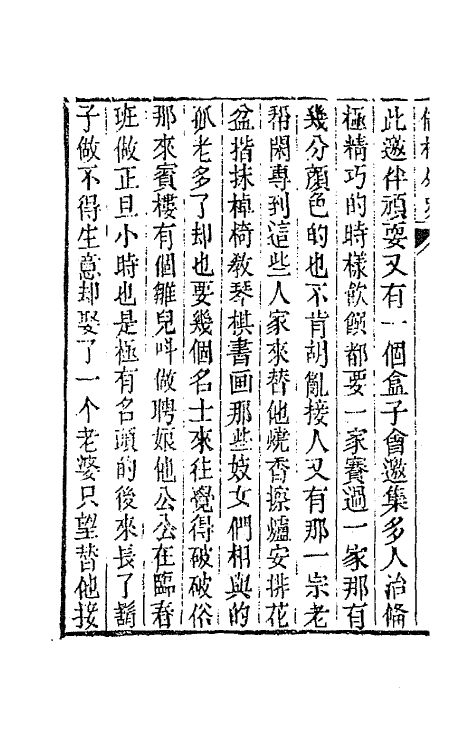 此邀伴頑耍又有一個盒子會邀集多人治備
極精巧的時樣飲饌都要一家賽過一家那有
幾分顏色的也不肯胡亂接人又有那一宗老
帮閑專到這些人家來替他燒香擦爐安排花
盆揩抹桌椅教琴棋書画那些妓女們相與的
孤老多了却也要幾個名士來往覺得破破俗
那來賓樓有個雛兒呌做聘娘他公公在臨春
班做正旦小時也是極有名頭的後來長了鬍
子做不得生意却娶了一个老婆只望替他接